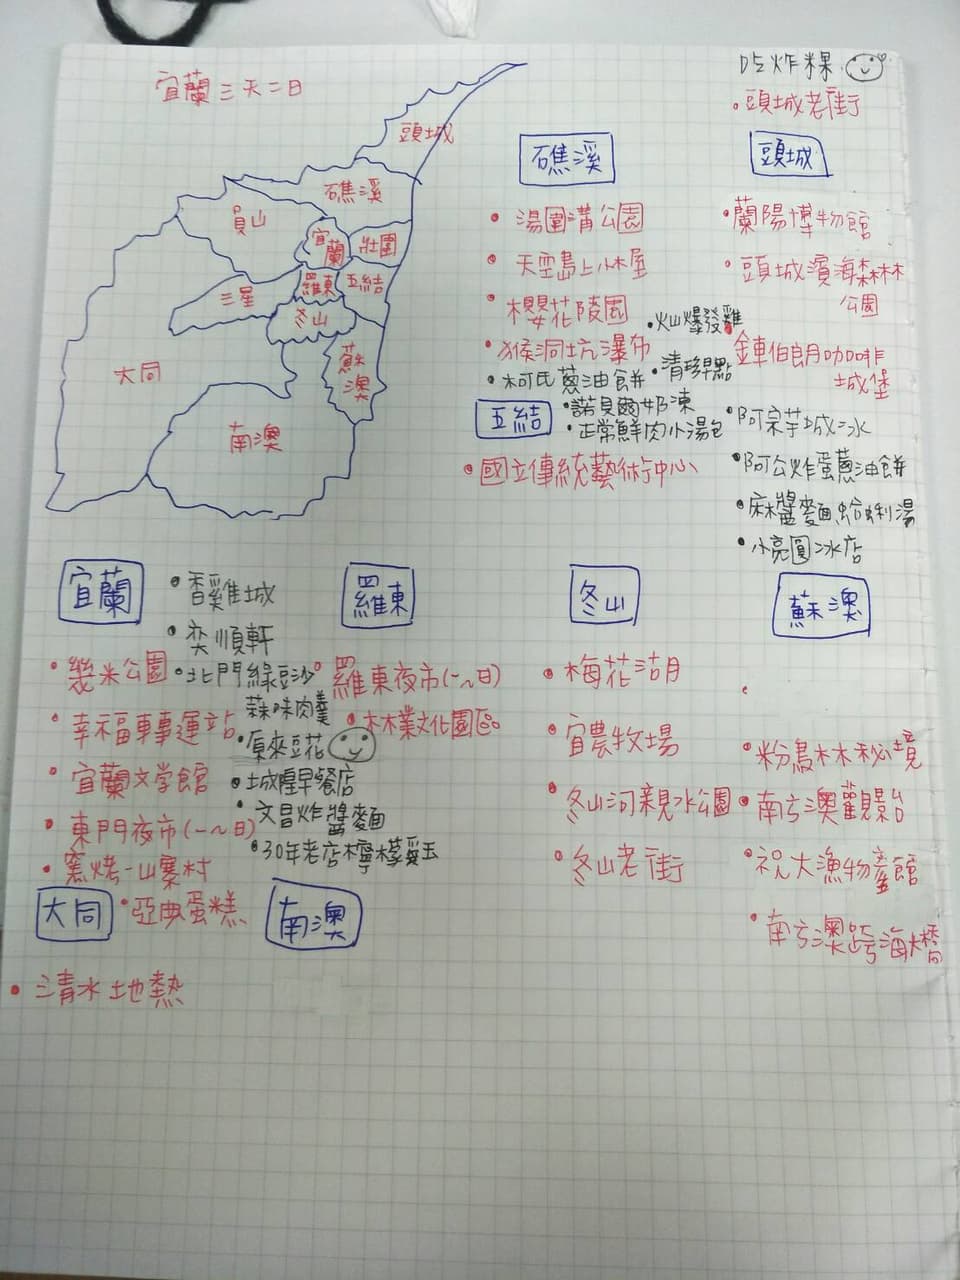 宜蘭三天二日
吃炸粿
頭城老街
頭城
礁溪
員山
宜蘭
壯圍
三星
羅東
五結
冬山
大同
蘇澳
南澳
礁溪
湯圍溝公園
天空島上小木屋
櫻花陵園
猴洞坑瀑布
火山爆發雞
柯氏蔥油餅
清珍早點
頭城
蘭陽博物館
頭城濱海森林
公園
金車伯朗咖啡
城堡
阿宗芋城冰
阿公炸蛋蔥油餅
麻醬麵蛤蜊湯
小亮圓冰店
五結
諾貝爾奶凍
正常鮮肉小湯包
國立傳統藝術中心
宜蘭
香雞城
奕順軒
幾米公園
北門綠豆沙
蒜味肉羹
幸福轉運站
原來豆花
宜蘭文学館
城隍早餐店
文昌炸醬麵
東門夜市(一~日)
30年老店檸檬愛玉
窯烤一山寨村
亞典蛋糕
羅東
羅東夜市(一~日)
林業文化園區
冬山
梅花湖
宜農牧場
冬山河親水公園
冬山老街
蘇澳
粉鳥林秘境
南方澳觀景台
祝大漁物產館
南方澳跨海大橋
大同
清水地熱
南澳